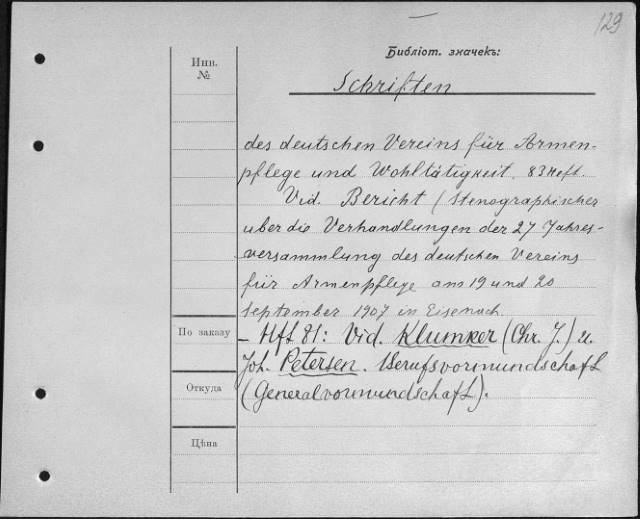 129
Библіот. значекъ:
Инв.
№
Schriften
des deutschen Vereins für Armen-
pflege und Wohltätigkeit. 83 Heft.
Vid. Bericht (Stenographischer
über die Verhandlungen der 27 Jahres-
versammlung des deutschen Vereins
für Armenpflege am 19 und 20
September 1907 in Eisenach.
По заказу
- Hft 81: Vid. Klumker (Chr. J.) u.
Joh. Petersen. Berufsvormundschaft
Откуда
(Generalvormundschaft).
Цѣна